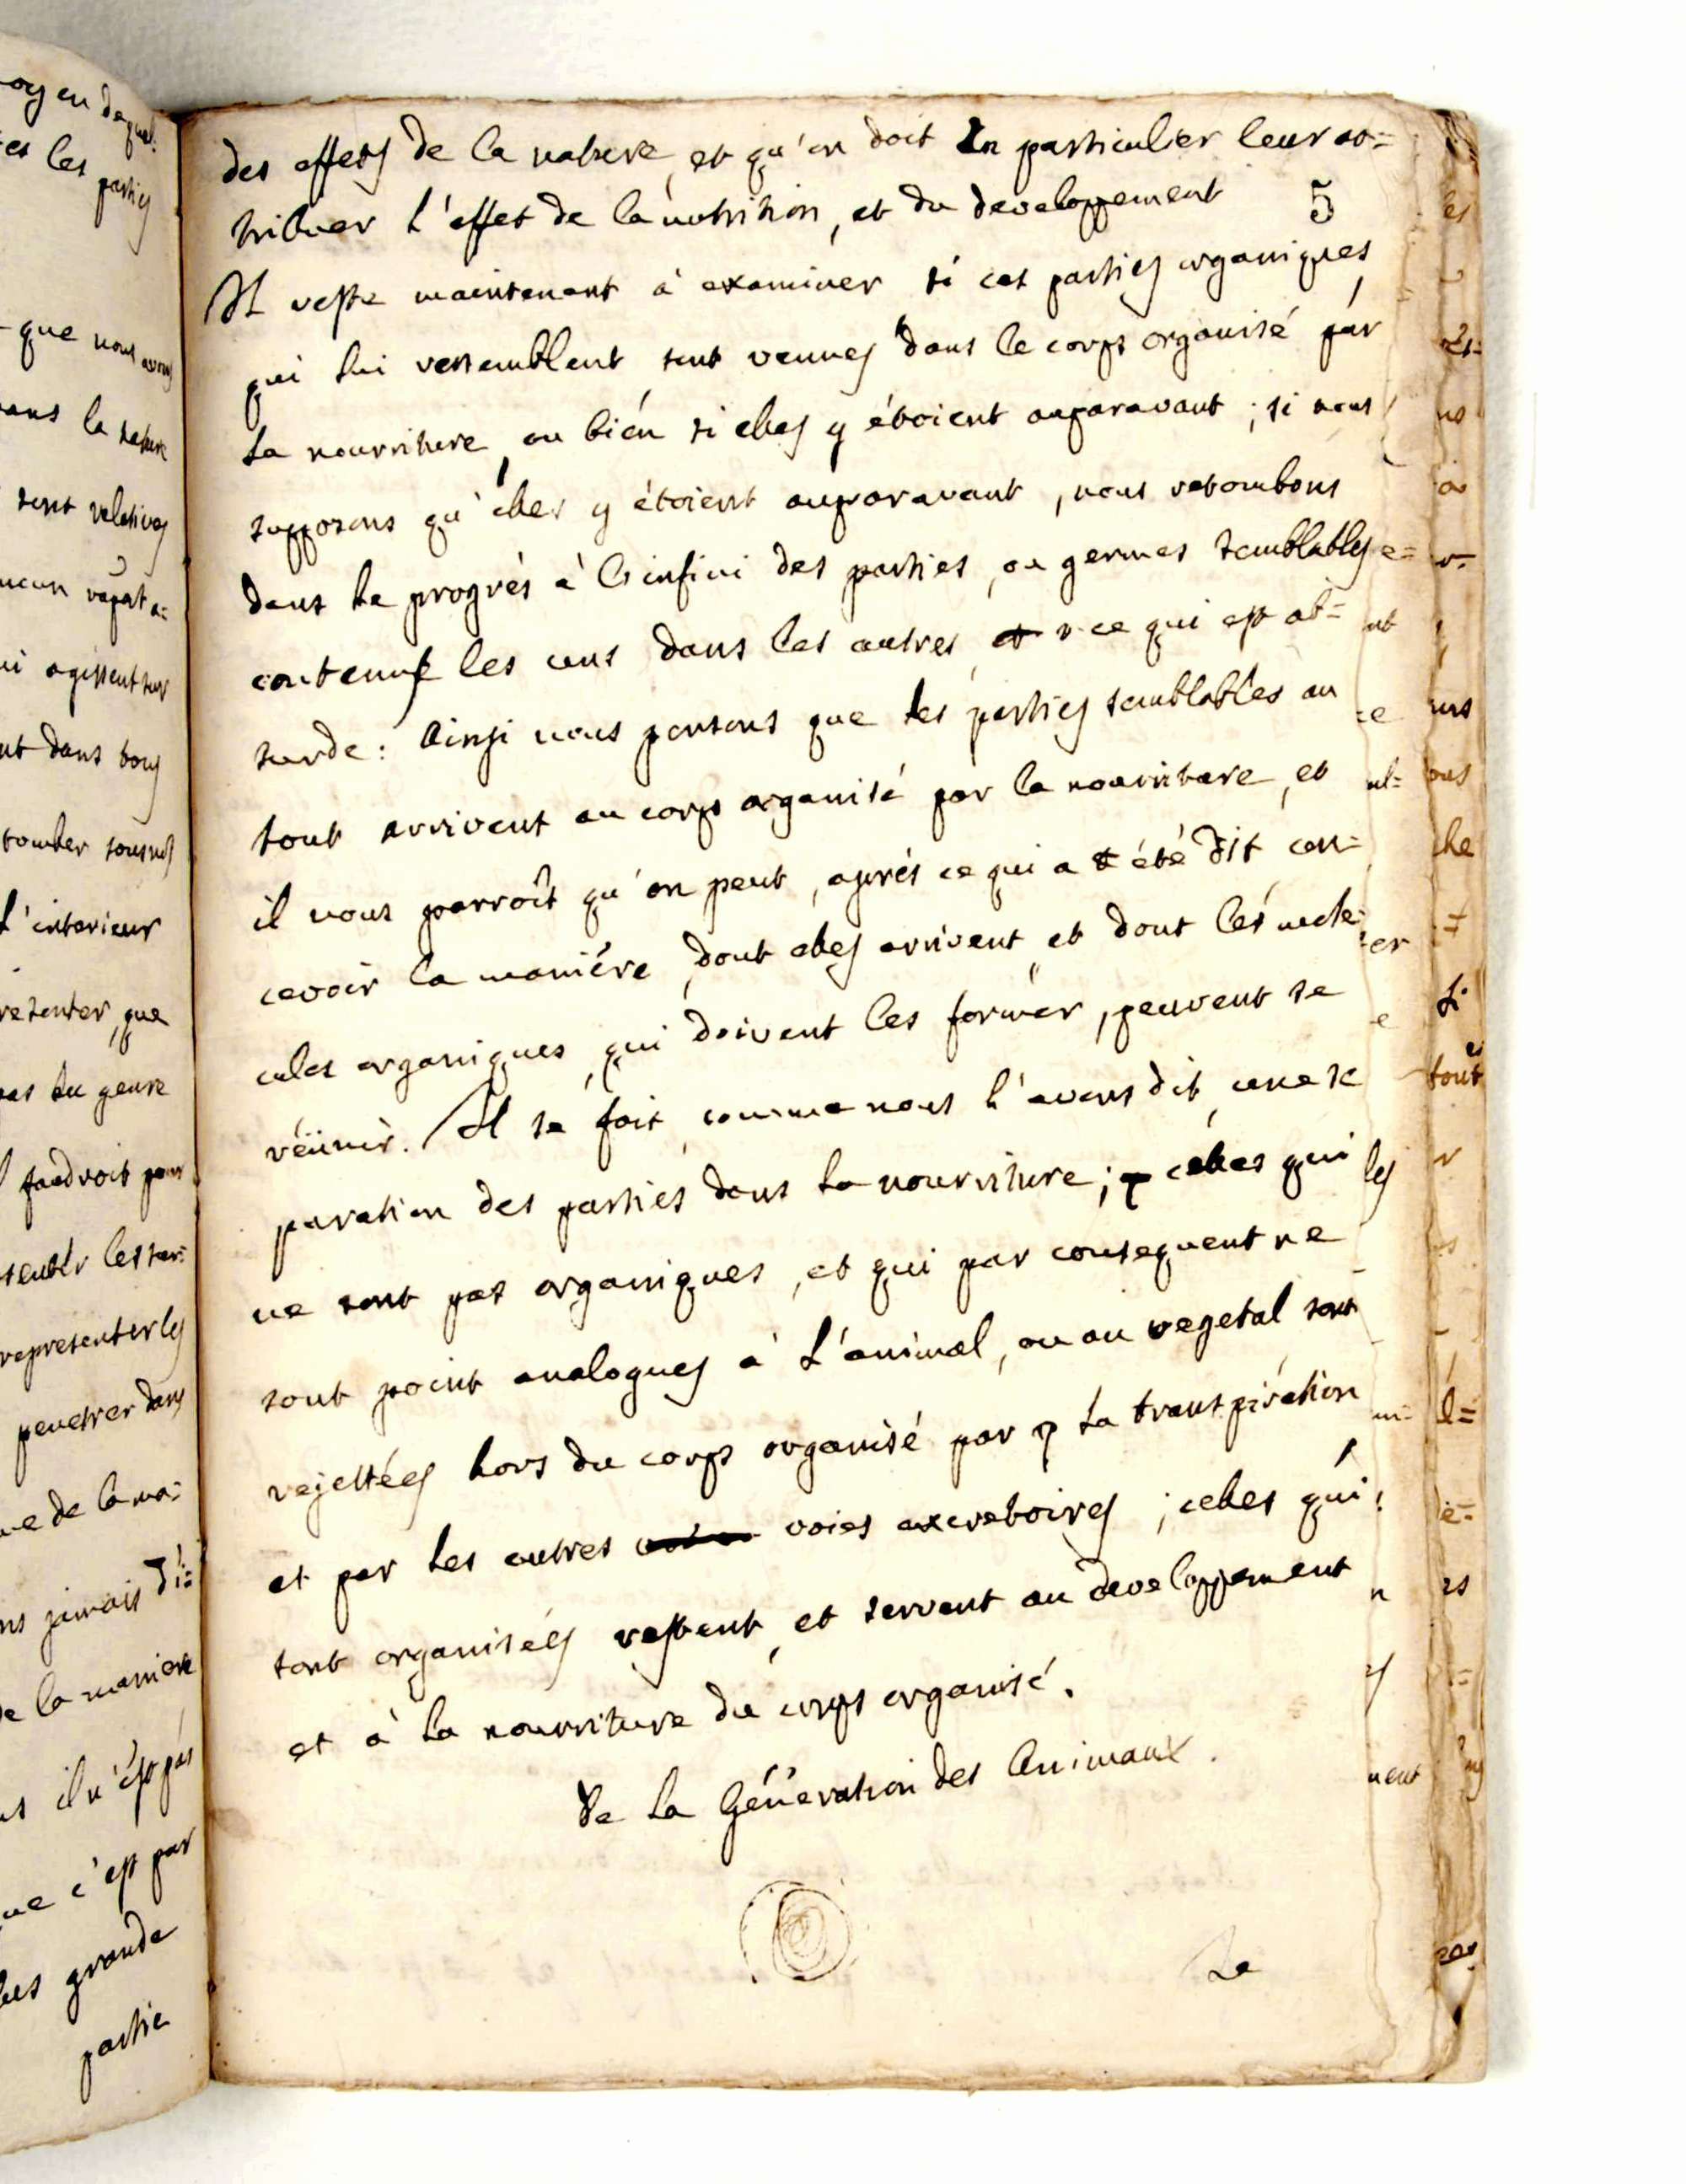 oy en de quel=
es les parties
que nous avons
ans la nature
sont relatives
ucun raport a=
ui agissent sur
nt dans tous
tomber sous nos
L'interieur
resenter, que
pas du genre
l faudroit pour
representer les
penetrer dans
ue de la ma=
ns jamais di=
e la maniere
us il n'est pas
ue c'est par
lus grande
partie
des effets de la nature, et qu'on doit En particulier leur at=
tribuer l'effet de la nutrition, et du developpement
5
Il reste maintenant à examiner si ces parties organiques,
qui lui ressemblent sont venues dans le corps organisé par
la nourriture, ou bién si elles y étoient auparavant ; si nous
supposons qu'elles y étoient auparavant, nous retombons
dans le progrès à l'infini des parties, ou germes semblables
contenus les uns dans les autres, ce qui est ab=
surde : Ainsi nous pensons que les parties semblables au
tout arrivent au corps organisé par la nourriture, et
il nous parroît qu'on peut, aprés ce qui a été dit, con=
cevoir la maniére, dont elles arrivent, et dont les mole=
cules organiques, qui doivent les former, peuvent se
réünir. Il se fait, comme nous l'avons dit, une se
paration des parties dans la nourriture ; celles qui
ne sont pas organiques, et qui par consequent ne
sont point analogues à L'animal, ou au vegetal sont
rejettées hors du corps organisé par la transpiration
et par les autres voies excretoires ; celles qui
sont organisées restent, et servent au developpement
et à la nourriture du corps organisé.
De la Géneration des Animaux.
Le